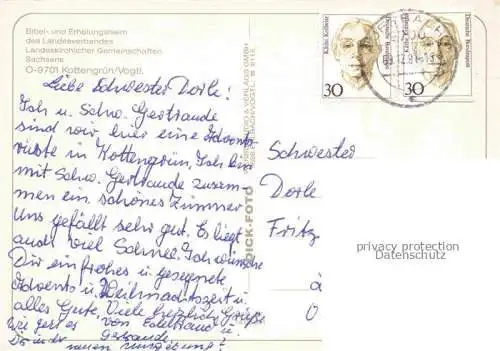 Bibel- und Erholungsheim
des Landesverbandes
Landeskirchlicher Gemeinschaften
Sachsens
O-9701 Kottengrün/Vogtl.
Liebe Schwester Dorle!
Ich u. Schw. Gertraude
sind wir hier eine Advents
rüste in Kottengrün. Ich bin
mit Schw. Gertraude zusam-
men ein schönes Zimmer
Uns gefällt sehr gut. Es liegt
auch viel Schnee. Ich wünsche
Dir ein frohes u. gesegnete
Advents u. Weihnachtszeit u.
alles Gute. Viele herzliche Grüße
Wie geht es von Edeltraud u.
Dir in der Gertraude
neuen Umgebung?
DICK-FOTO
30
Käthe Kollwitz
Deutsche Bundespost
30
Käthe Kollwitz
Deutsche Bundespost
Schwester
Dorle
Fritz
privacy protection
Datenschutz
O